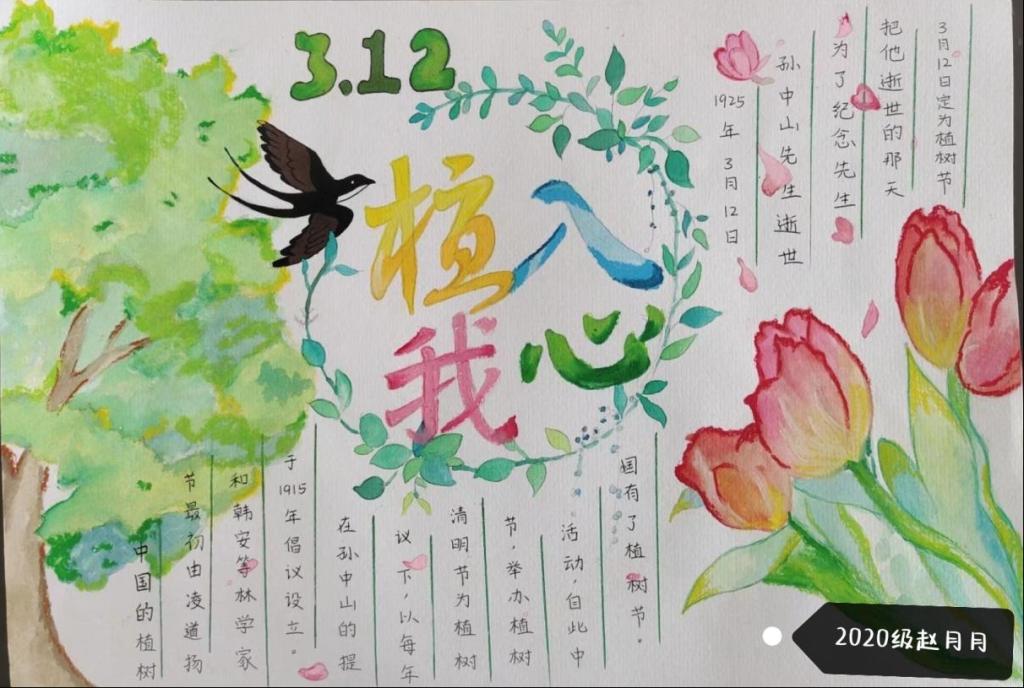 3.12
植入
我心
1925年3月12日
孙中山先生逝世
为了纪念先生
把他逝世的那天
3月12日定为植树节
中国的植树
节最初由凌道扬
和韩安等林学家
于1915年倡议设立。
在孙中山的提
议下,以每年
清明节为植树
节,举办植树
活动,自此中
国有了植树节。
2020级赵月月